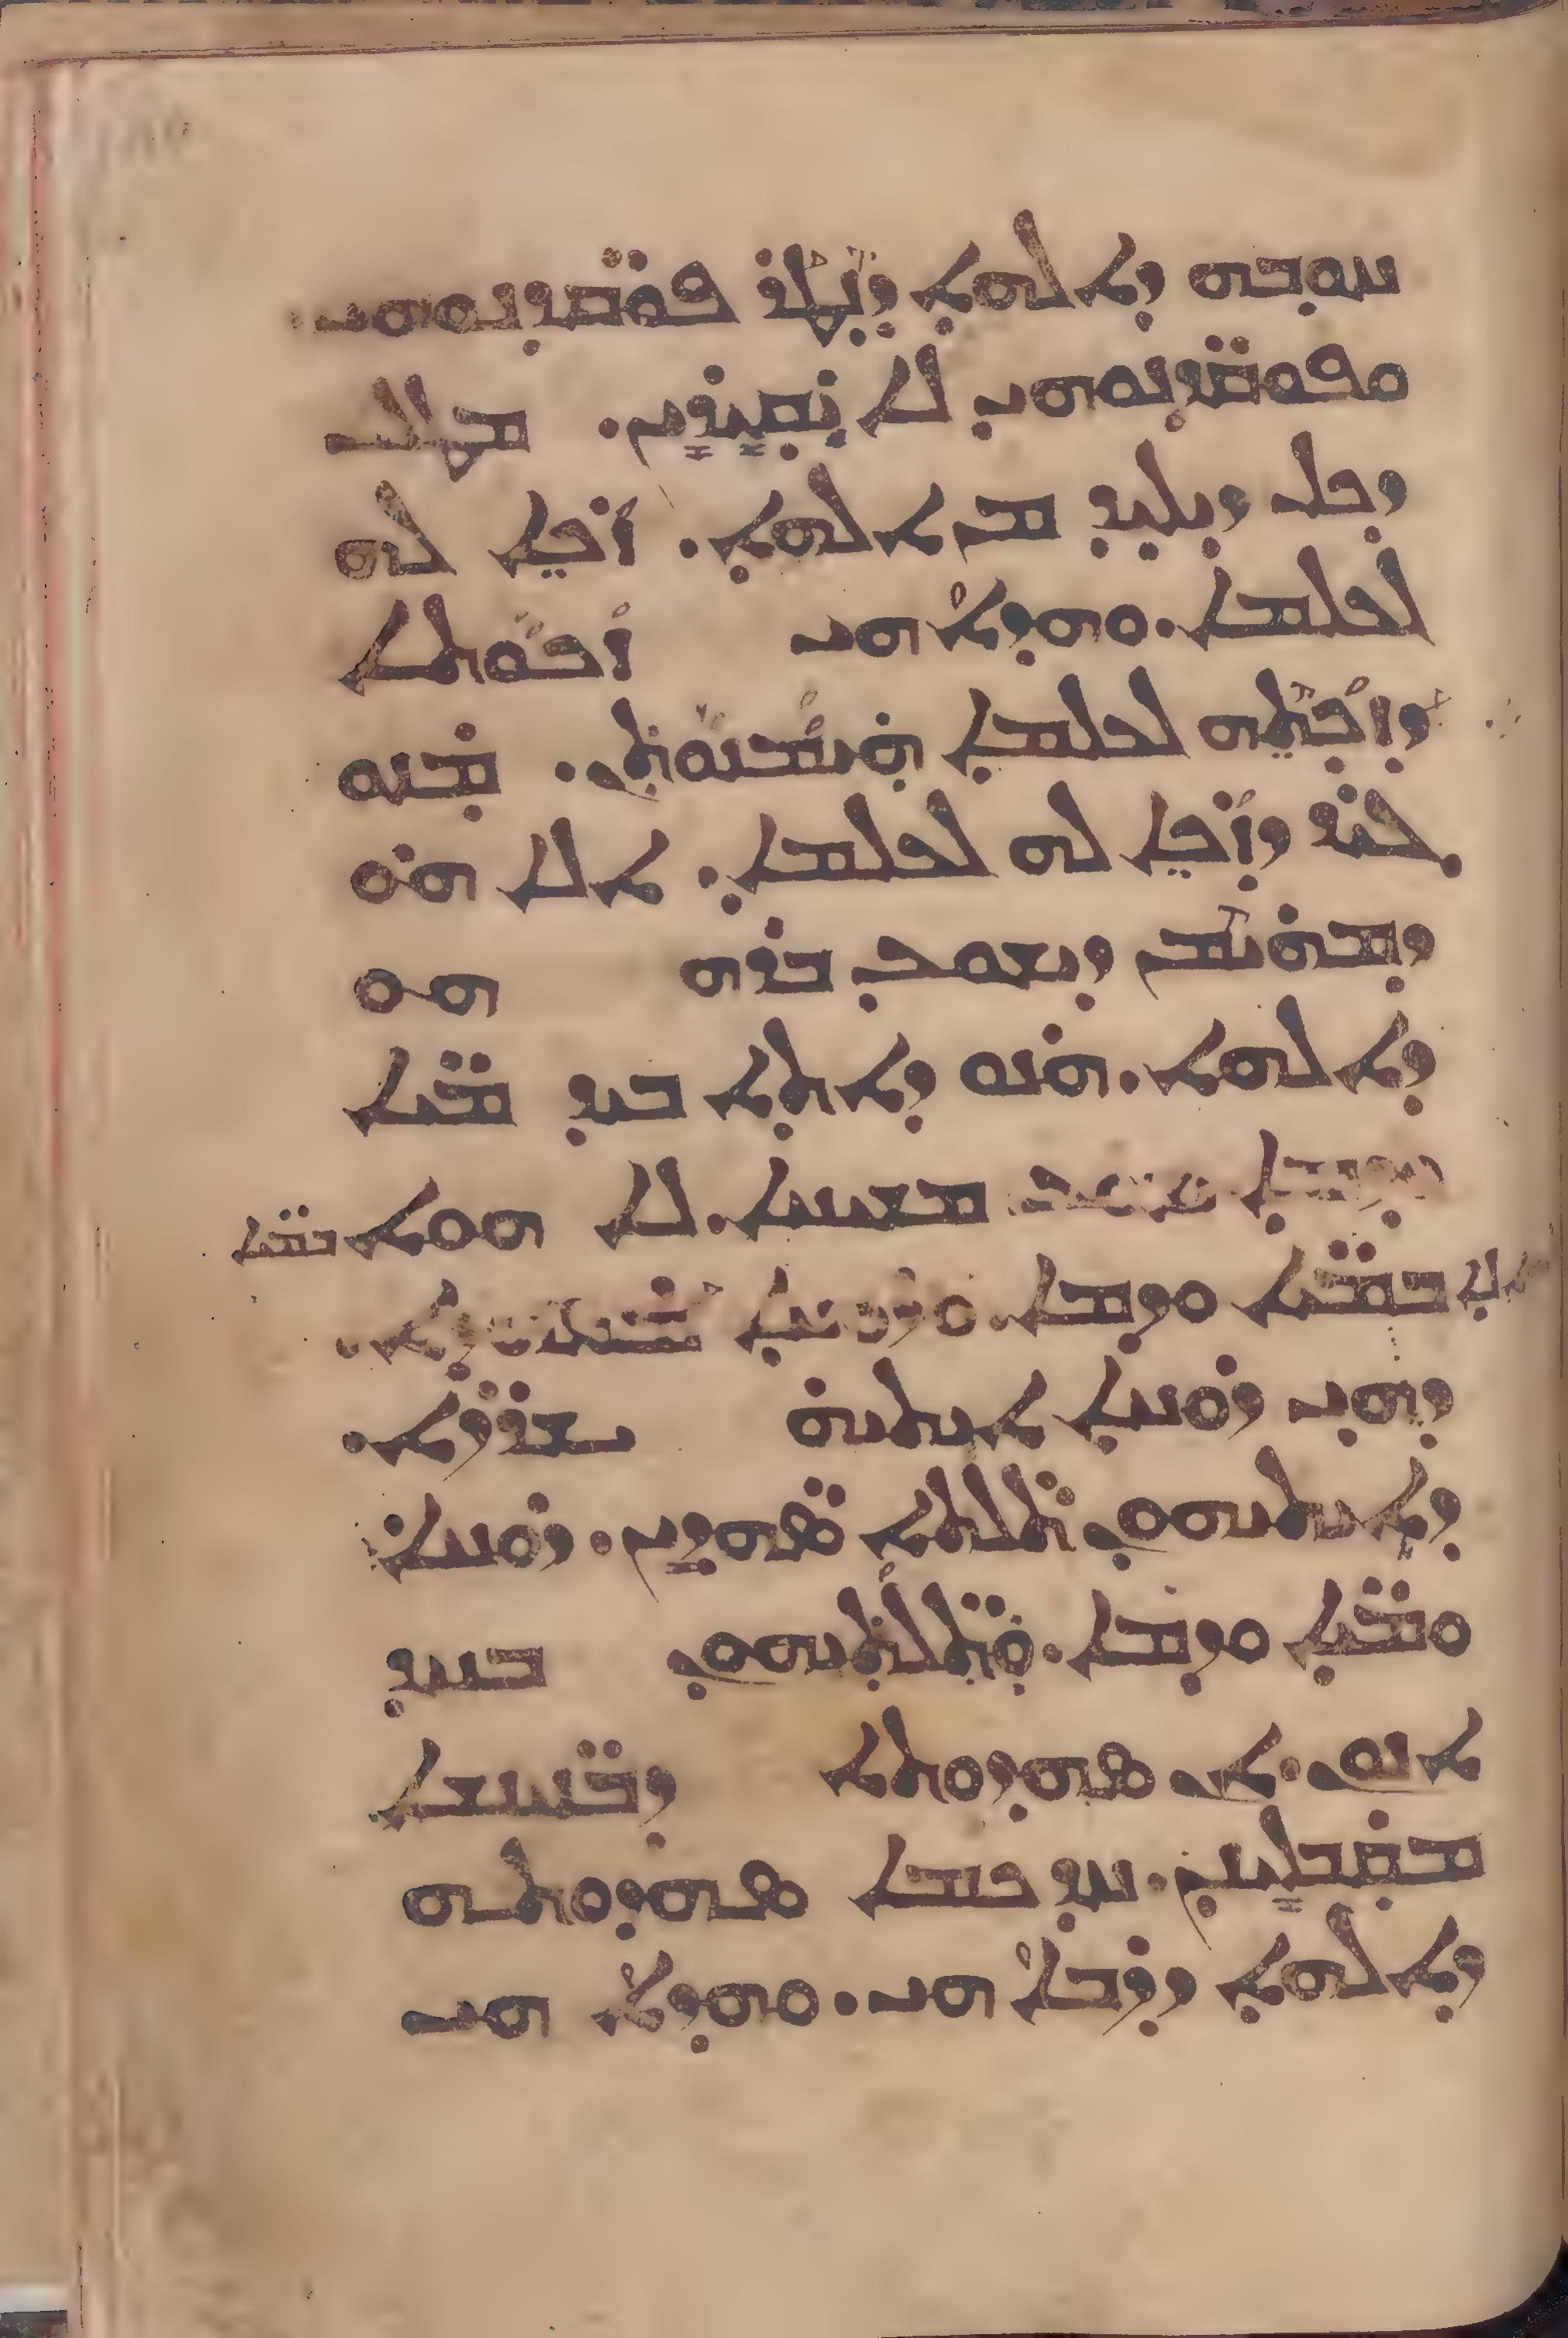 ܚܘܒܗ ܕܐܠܗܐ ܕܢܛܪ ܦܘܩܕܢܘܗܝ
ܘܦܘܩܕܢܘܗܝ ܠܐ ܝܩܝܪܝܢ. ܡܛܠ
ܕܟܠ ܕܝܠܝܕ ܡܢ ܐܠܗܐ. ܙܟܐ ܠܗ
ܠܥܠܡܐ. ܘܗܕܐ ܗܝ ܙܟܘܬܐ
ܕܙܟܬܗ ܠܥܠܡܐ ܗܝܡܢܘܬܢ. ܡܢܘ
ܓܝܪ ܕܙܟܐ ܠܗ ܠܥܠܡܐ. ܐܠܐ ܗܘ
ܕܡܗܝܡܢ ܕܝܫܘܥ ܒܪܗ ܗܘ
ܕܐܠܗܐ. ܗܢܘ ܕܐܬܐ ܒܝܕ ܡܝܐ
ܘܕܡܐ ܝܫܘܥ ܡܫܝܚܐ. ܠܐ ܗܘܐ ܒܡܝܐ
ܐܠܐ ܒܡܝܐ ܘܕܡܐ. ܘܪܘܚܐ
ܕܗܝ ܕܪܘܚܐ ܐܝܬܝܗ ܫܪܪܐ.
ܕܐܝܬܝܗܘܢ ܬܠܬܐ ܣܗܕܝܢ. ܪܘܚܐ
ܘܡܝܐ ܘܕܡܐ. ܘܬܠܬܝܗܘܢ ܒܚܕ
ܐܢܘܢ. ܐܢ ܣܗܕܘܬܐ ܕܒܢܝܢܫܐ
ܡܩܒܠܝܢܢ. ܚܕ ܟܡܐ ܣܗܕܘܬܗ
ܕܐܠܗܐ ܕܪܒܐ ܗܝ. ܘܗܕܐ ܗܝ